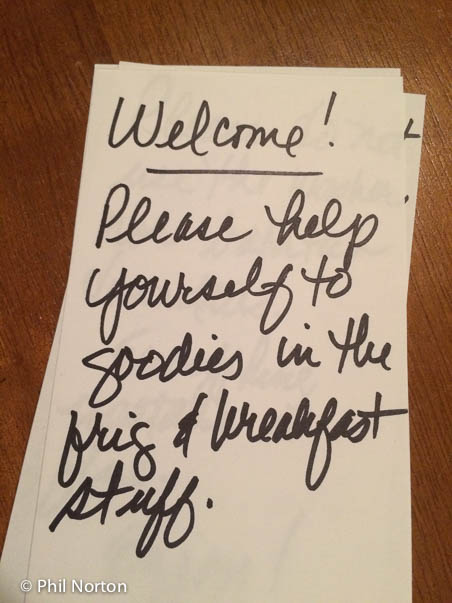 Welcome!
Please help
yourself to
goodies in the
frig & breakfast
stuff.
© Phil Norton